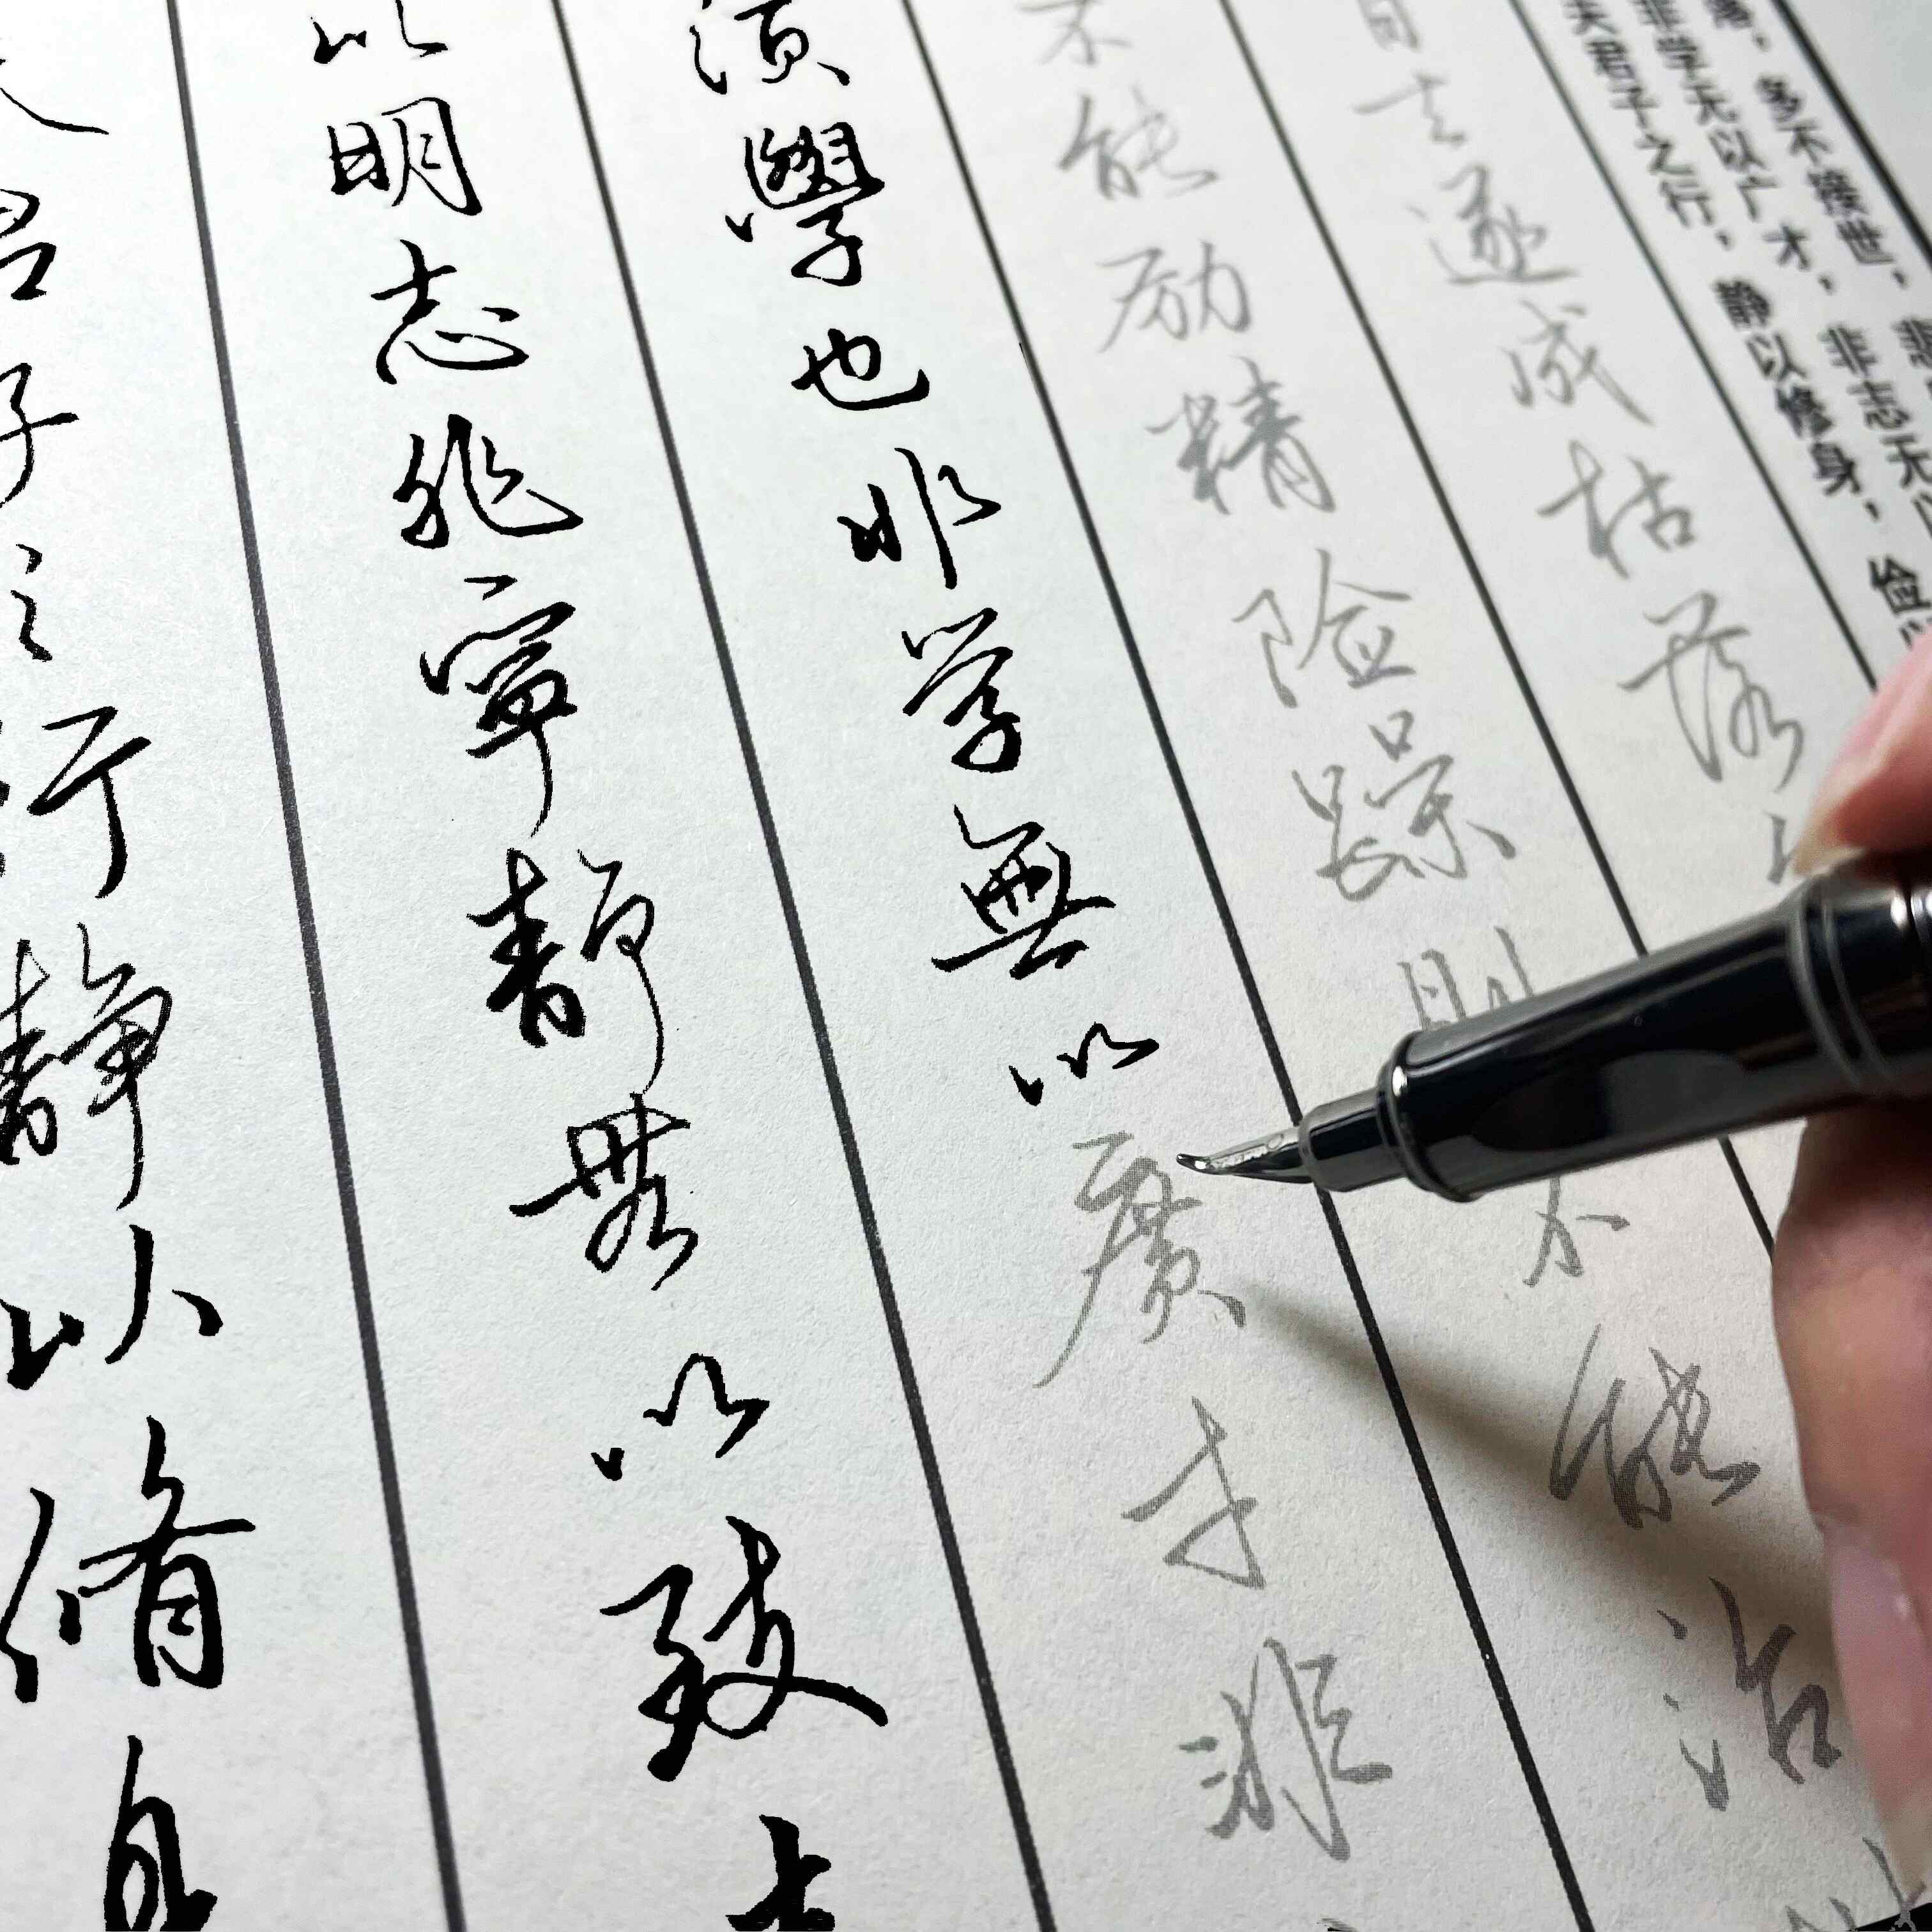 君子之行静以脩身
以明志非寧靜無以致
須學也非学無以廣才非
不能励精险躁則不能治
日去遂成枯落
夫君子之行，静以修身，俭
非学无以广才，非志无
落，多不接世，悲